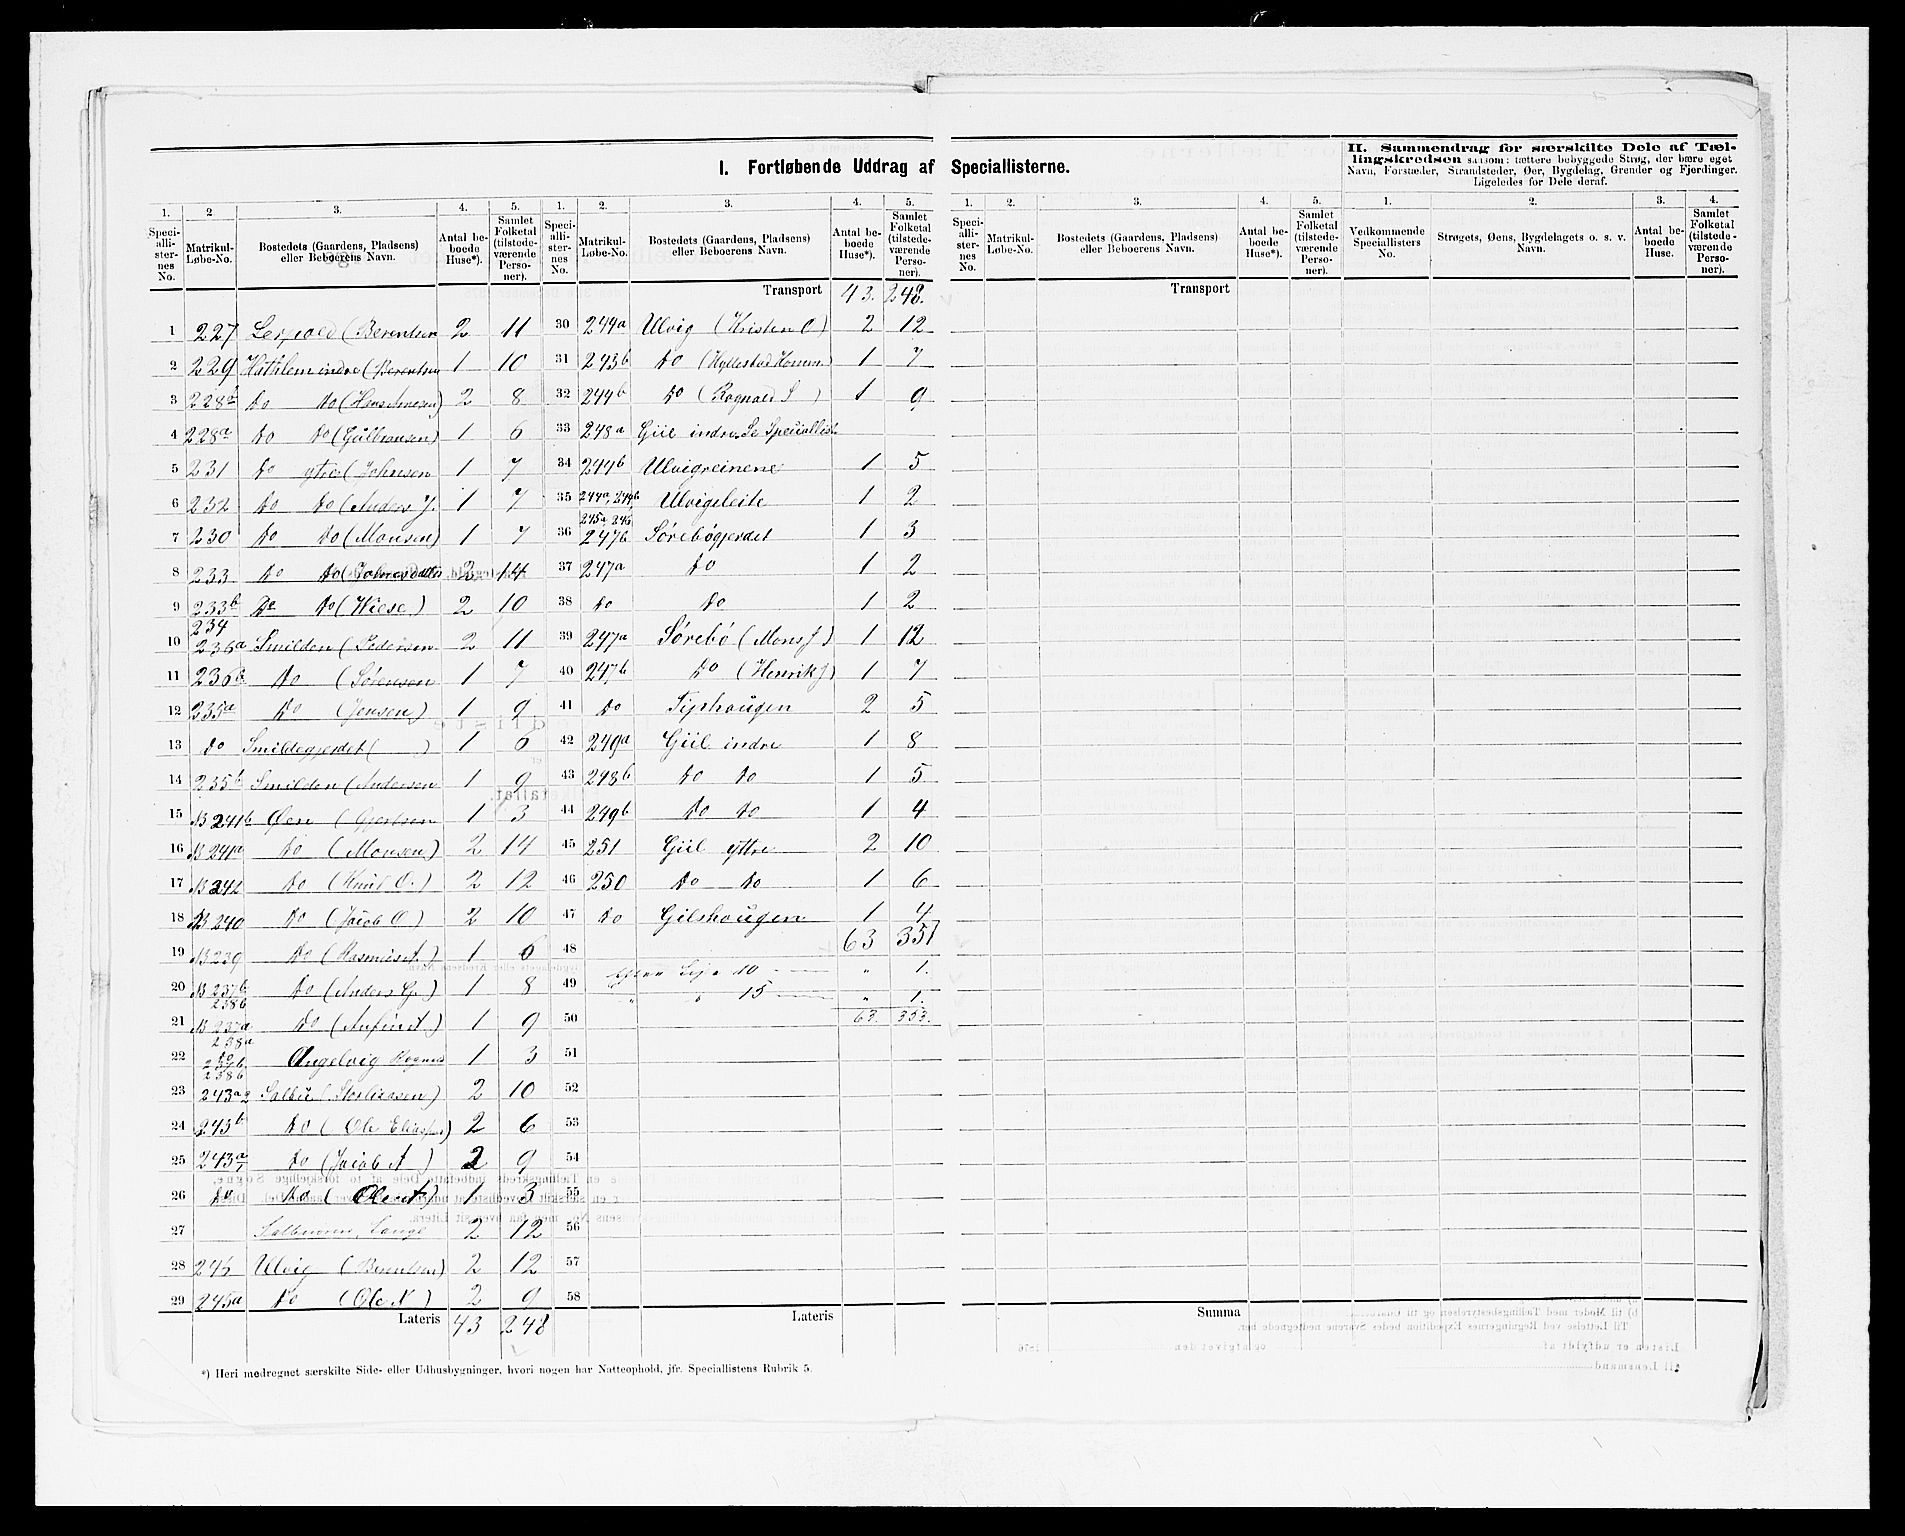 I. Fortløbende Uddrag af Speciallisterne.
II. Sammendrag for særskilte Dele af Tæl-
lingskredsen saasom: tættere bebyggede Strøg, der bære eget
Navn, Forstæder, Strandsteder, Øer, Bygdelag, Grender og Fjerdinger.
Ligeledes for Dele deraf.
1. 2 3. 4. 5. 1. 2. 3. 4. 5. 1. 2. 3. 4. 5. 1. 2. 3. 4.
Speci-alli-ster-nes No. Matrikul-Løbe-No. Bostedets (Gaardens, Pladsens) eller Beboerens Navn. Antal be-boede Huse*). Samlet Folketal (tilstede-værende Perso-ner).
Speci-alli-ster-nes No. Matrikul-Løbe-No. Bostedets (Gaardens, Pladsens) eller Beboerens Navn. Antal be-boede Huse*). Samlet Folketal (tilstede-værende Perso-ner).
Speci-alli-ster-nes No. Matrikul-Løbe-No. Bostedets (Gaardens, Pladsens) eller Beboerens Navn. Antal be-boede Huse*). Samlet Folketal (tilstede-værende Perso-ner).
Vedkommende Speciallisters No. Strøgets, Øens, Bygdelagets o. s. v. Navn. Antal be-boede Huse. Samlet Folketal (tilstede-værende Perso-ner).
1 227 (Berentsen 2 11
2 229 Hathlem indre (Berentsen 1 10
3 228b do do (Hans Amesen) 2 8
4 228a do do (Gulbransen) 1 6
5 231 do ytre (Johnsen 1 7
6 232 do do (Anders J. 1 7
7 230 do do (Monsen) 1 7
8 233 do do 2 14
9 233b do do (Wiese) 2 10
10 234 236a Smilden (Pedersen 2 11
11 236b do (Sørensen 1 7
12 235a do (Jensen) 1 9
13 do Smildegjerdet ( ) 1 6
14 235b Smilden (Andersen 1 9
15 NB 241b Øen (Gjertsen 1 3
16 NB 241a do (Monsen) 2 14
17 NB 242 do (Knut O.) 2 12
18 NB 240 do (Jacob O) 2 10
19 NB 239 do (Rasmus A.) 1 6
20 NB 237b 238b do (Anders G.) 1 8
21 NB 237a 238a do (Anfin A.) 1 9
22 do 237b 238b Angelvig 1 3
23 243a2 Salbu ( 2 10
24 243b do (Ole Eliassen) 2 6
25 243a1 do (Jacob A ) 2 9
26 do do (Ole A.) 1 3
27 2 12
28 245 Ulvig (Berentsen) 2 12
29 245a do (Ole N ) 2 9
Lateris 43 248
Transport 43. 248.
30 244a Ulvig (Kristen O) 2 12
31 243b do (Hyllestad 1 7
32 244b do (Rognald S ) 1 9
33 248a Giil indre, Se Speciallist
34 244b Ulvigreinene 1 5
35 244a, 244b Ulvigsleite 1 2
36 245a 245 247b Sørebøgjerdet 1 3
37 247a do 1 2
38 do do 1 2
39 247a Sørebø (Mons J) 1 12
40 247b do (Henrik J) 1 7
41 do Tiphougen 2 5
42 249a Giil indre 1 8
43 248b do do 1 5
44 249b do do 1 4
45 251 Giil yttre 2 10
46 250 do do 1 6
47 do Gilshougen 1 4
63 351
48 10 " 1.
49 " " 15 " 1.
50 63. 353.
51
52
53
54
55
56
57
58
Lateris
Transport
Summa
*) Heri medregnet særskilte Side- eller Udhusbygninger, hvori nogen har Natteophold, jfr. Speciallistens Rubrik 5.